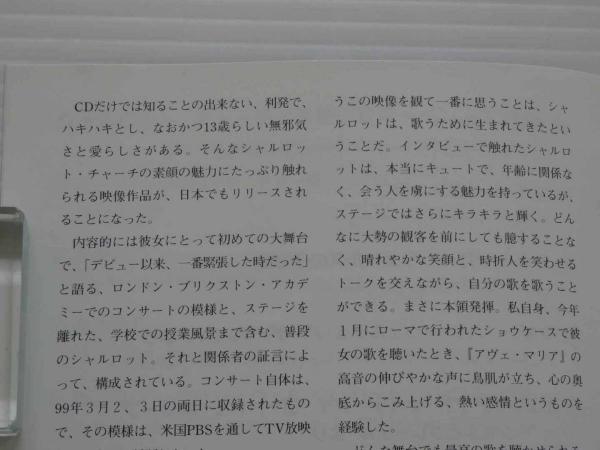 CDだけでは知ることの出来ない、利発で、
ハキハキとし、なおかつ13歳らしい無邪気
さと愛らしさがある。そんなシャルロッ
ト・チャーチの素顔の魅力にたっぷり触れ
られる映像作品が、日本でもリリースされ
ることになった。
内容的には彼女にとって初めての大舞台
で、「デビュー以来、一番緊張した時だった」
と語る、ロンドン・ブリクストン・アカデ
ミーでのコンサートの模様と、ステージを
離れた、学校での授業風景まで含む、普段
のシャルロット。それと関係者の証言によ
って、構成されている。コンサート自体は、
99年３月２、３日の両日に収録されたもの
で、その模様は、米国PBSを通してTV放映
うこの映像を観て一番に思うことは、シャ
ルロットは、歌うために生まれてきたとい
うことだ。インタビューで触れたシャルロ
ットは、本当にキュートで、年齢に関係な
く、会う人を虜にする魅力を持っているが、
ステージではさらにキラキラと輝く。どん
なに大勢の観客を前にしても臆することな
く、晴れやかな笑顔と、時折人を笑わせる
トークを交えながら、自分の歌を歌うこと
ができる。まさに本領発揮。私自身、今年
１月にローマで行われたショウケースで彼
女の歌を聴いたとき、『アヴェ・マリア』の
高音の伸びやかな声に鳥肌が立ち、心の奥
底からこみ上げる、熱い感情というものを
経験した。
どんな舞台でも最高の歌を聴かせられる